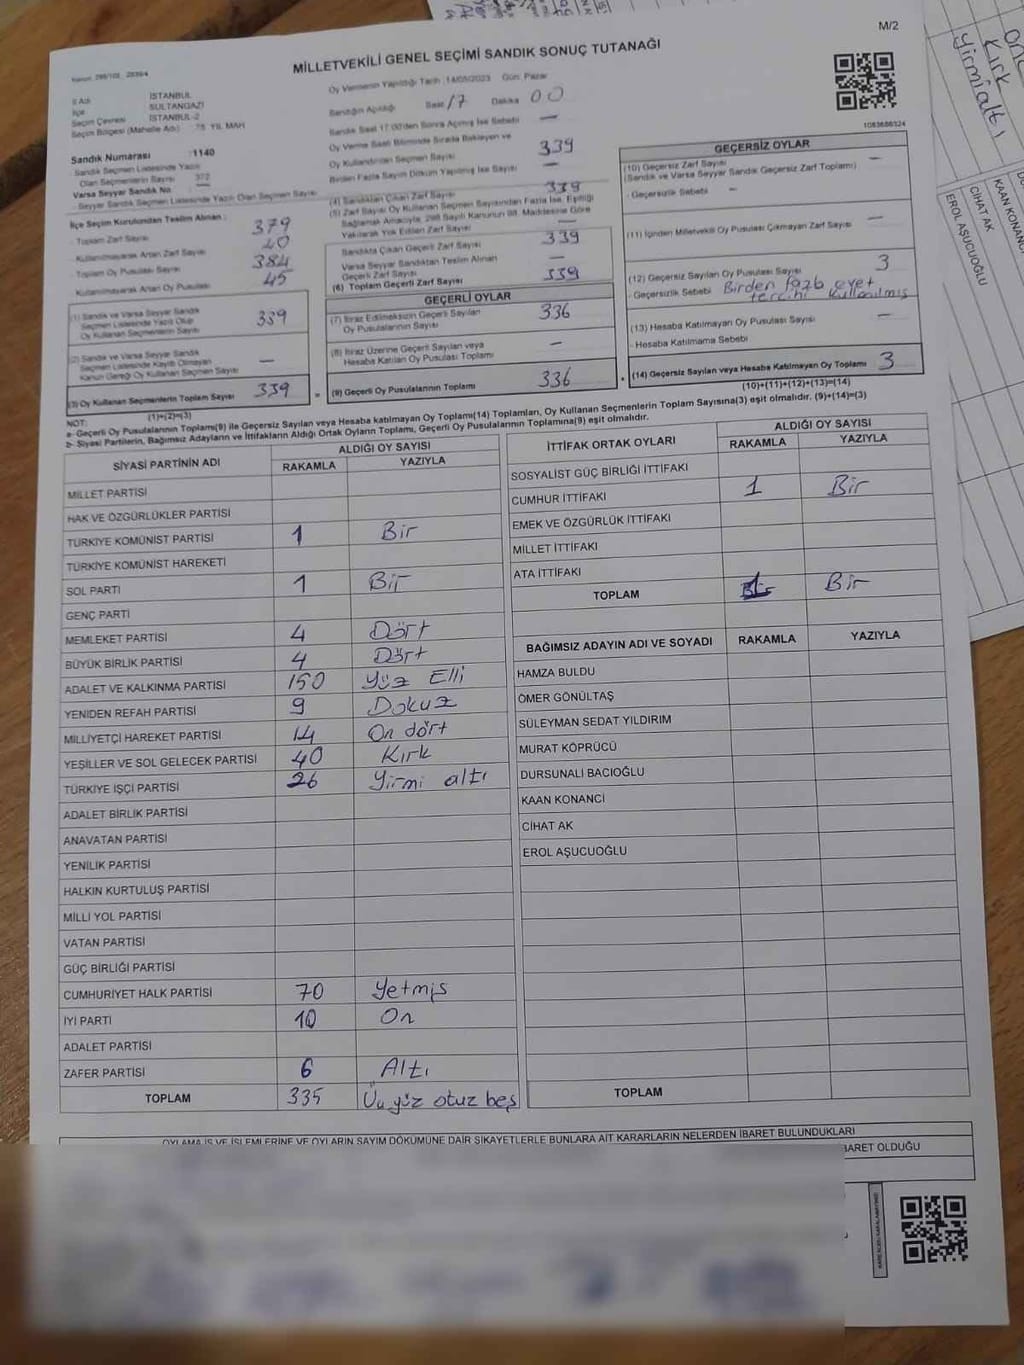 M/2
MİLLETVEKİLİ GENEL SEÇİMİ SANDIK SONUÇ TUTANAĞI
İl Adı : İSTANBUL
İlçe : SULTANGAZİ
Seçim Çevresi : İSTANBUL-2
Seçim Bölgesi (Mahalle Adı) : 75. YIL MAH
Sandık Numarası : 1140
Sandık Seçmen Listesinde Yazılı
Olan Seçmenlerin Sayısı : 372
Varsa Seyyar Sandık No
Seyyar Sandık Seçmen Listesinde Yazılı Olan Seçmen Sayısı
İlçe Seçim Kurulundan Teslim Alınan :
- Toplam Zarf Sayısı 379
- Kullanılmayarak Artan Zarf Sayısı 40
- Toplam Oy Pusulası Sayısı 384
- Kullanılmayarak Artan Oy Pusulası 45
(1) Sandık ve Varsa Seyyar Sandık
Seçmen Listesinde Yazılı Olup
Oy Kullanan Seçmenlerin Sayısı 339
(2) Sandık ve Varsa Seyyar Sandık
Seçmen Listesinde Kayıtlı Olmayan
Kanun Gereği Oy Kullanan Seçmen Sayısı —
(3) Oy Kullanan Seçmenlerin Toplam Sayısı 339
(1)+(2)=(3)
Oy Vermenin Yapıldığı Tarih : 14/05/2023 Gün: Pazar
Sandığın Açıldığı Saat 17 Dakika 00
Sandık Saat 17:00'den Sonra Açılmış İse Sebebi —
Oy Verme Saati Bitiminde Sırada Bekleyen ve
Oy Kullandırılan Seçmen Sayısı 339
Birden Fazla Sayım Döküm Yapılmış İse Sayısı —
(4) Sandıktan Çıkan Zarf Sayısı 339
(5) Zarf Sayısı Oy Kullanan Seçmen Sayısından Fazla İse, Eşitliği
Sağlamak Amacıyla, 298 Sayılı Kanunun 98. Maddesine Göre
Yakılarak Yok Edilen Zarf Sayısı —
Sandıkta Çıkan Geçerli Zarf Sayısı 339
Varsa Seyyar Sandıktan Teslim Alınan
Geçerli Zarf Sayısı —
(6) Toplam Geçerli Zarf Sayısı 339
GEÇERLİ OYLAR
(7) İtiraz Edilmeksizin Geçerli Sayılan
Oy Pusulalarının Sayısı 336
(8) İtiraz Üzerine Geçerli Sayılan veya
Hesaba Katılan Oy Pusulası Toplamı —
(9) Geçerli Oy Pusulalarının Toplamı 336
1083686324
GEÇERSİZ OYLAR
(10) Geçersiz Zarf Sayısı —
(Sandık ve Varsa Seyyar Sandık Geçersiz Zarf Toplamı)
- Geçersizlik Sebebi —
(11) İçinden Milletvekili Oy Pusulası Çıkmayan Zarf Sayısı —
(12) Geçersiz Sayılan Oy Pusulası Sayısı 3
- Geçersizlik Sebebi Birden fazla evet
tercihi kullanılmış
(13) Hesaba Katılmayan Oy Pusulası Sayısı —
- Hesaba Katılmama Sebebi
(14) Geçersiz Sayılan veya Hesaba Katılmayan Oy Toplamı 3
(10)+(11)+(12)+(13)=(14)
NOT:
a- Geçerli Oy Pusulalarının Toplamı(9) ile Geçersiz Sayılan veya Hesaba katılmayan Oy Toplamı(14) Toplamları, Oy Kullanan Seçmenlerin Toplam Sayısına(3) eşit olmalıdır. (9)+(14)=(3)
b- Siyasi Partilerin, Bağımsız Adayların ve İttifakların Aldığı Ortak Oyların Toplamı, Geçerli Oy Pusulalarının Toplamına(9) eşit olmalıdır.
SİYASİ PARTİNİN ADI ALDIĞI OY SAYISI
RAKAMLA YAZIYLA
MİLLET PARTİSİ
HAK VE ÖZGÜRLÜKLER PARTİSİ
TÜRKİYE KOMÜNİST PARTİSİ 1 Bir
TÜRKİYE KOMÜNİST HAREKETİ
SOL PARTİ 1 Bir
GENÇ PARTİ
MEMLEKET PARTİSİ 4 Dört
BÜYÜK BİRLİK PARTİSİ 4 Dört
ADALET VE KALKINMA PARTİSİ 150 Yüz Elli
YENİDEN REFAH PARTİSİ 9 Dokuz
MİLLİYETÇİ HAREKET PARTİSİ 14 On dört
YEŞİLLER VE SOL GELECEK PARTİSİ 40 Kırk
TÜRKİYE İŞÇİ PARTİSİ 26 Yirmi altı
ADALET BİRLİK PARTİSİ
ANAVATAN PARTİSİ
YENİLİK PARTİSİ
HALKIN KURTULUŞ PARTİSİ
MİLLİ YOL PARTİSİ
VATAN PARTİSİ
GÜÇ BİRLİĞİ PARTİSİ
CUMHURİYET HALK PARTİSİ 70 Yetmiş
İYİ PARTİ 10 On
ADALET PARTİSİ
ZAFER PARTİSİ 6 Altı
TOPLAM 335 Üç yüz otuz beş
İTTİFAK ORTAK OYLARI ALDIĞI OY SAYISI
RAKAMLA YAZIYLA
SOSYALİST GÜÇ BİRLİĞİ İTTİFAKI
CUMHUR İTTİFAKI 1 Bir
EMEK VE ÖZGÜRLÜK İTTİFAKI
MİLLET İTTİFAKI
ATA İTTİFAKI
TOPLAM 1 Bir
BAĞIMSIZ ADAYIN ADI VE SOYADI RAKAMLA YAZIYLA
HAMZA BULDU
ÖMER GÖNÜLTAŞ
SÜLEYMAN SEDAT YILDIRIM
MURAT KÖPRÜCÜ
DURSUNALİ BACIOĞLU
KAAN KONANCİ
CİHAT AK
EROL AŞUCUOĞLU
TOPLAM
OYLAMA İŞ VE İŞLEMLERİNE VE OYLARIN SAYIM DÖKÜMÜNE DAİR ŞİKAYETLERLE BUNLARA AİT KARARLARIN NELERDEN İBARET BULUNDUKLARI
İBARET OLDUĞU
Kırk
Yirmialtı
KAAN KONANCİ
CİHAT AK
EROL AŞUCUOĞLU